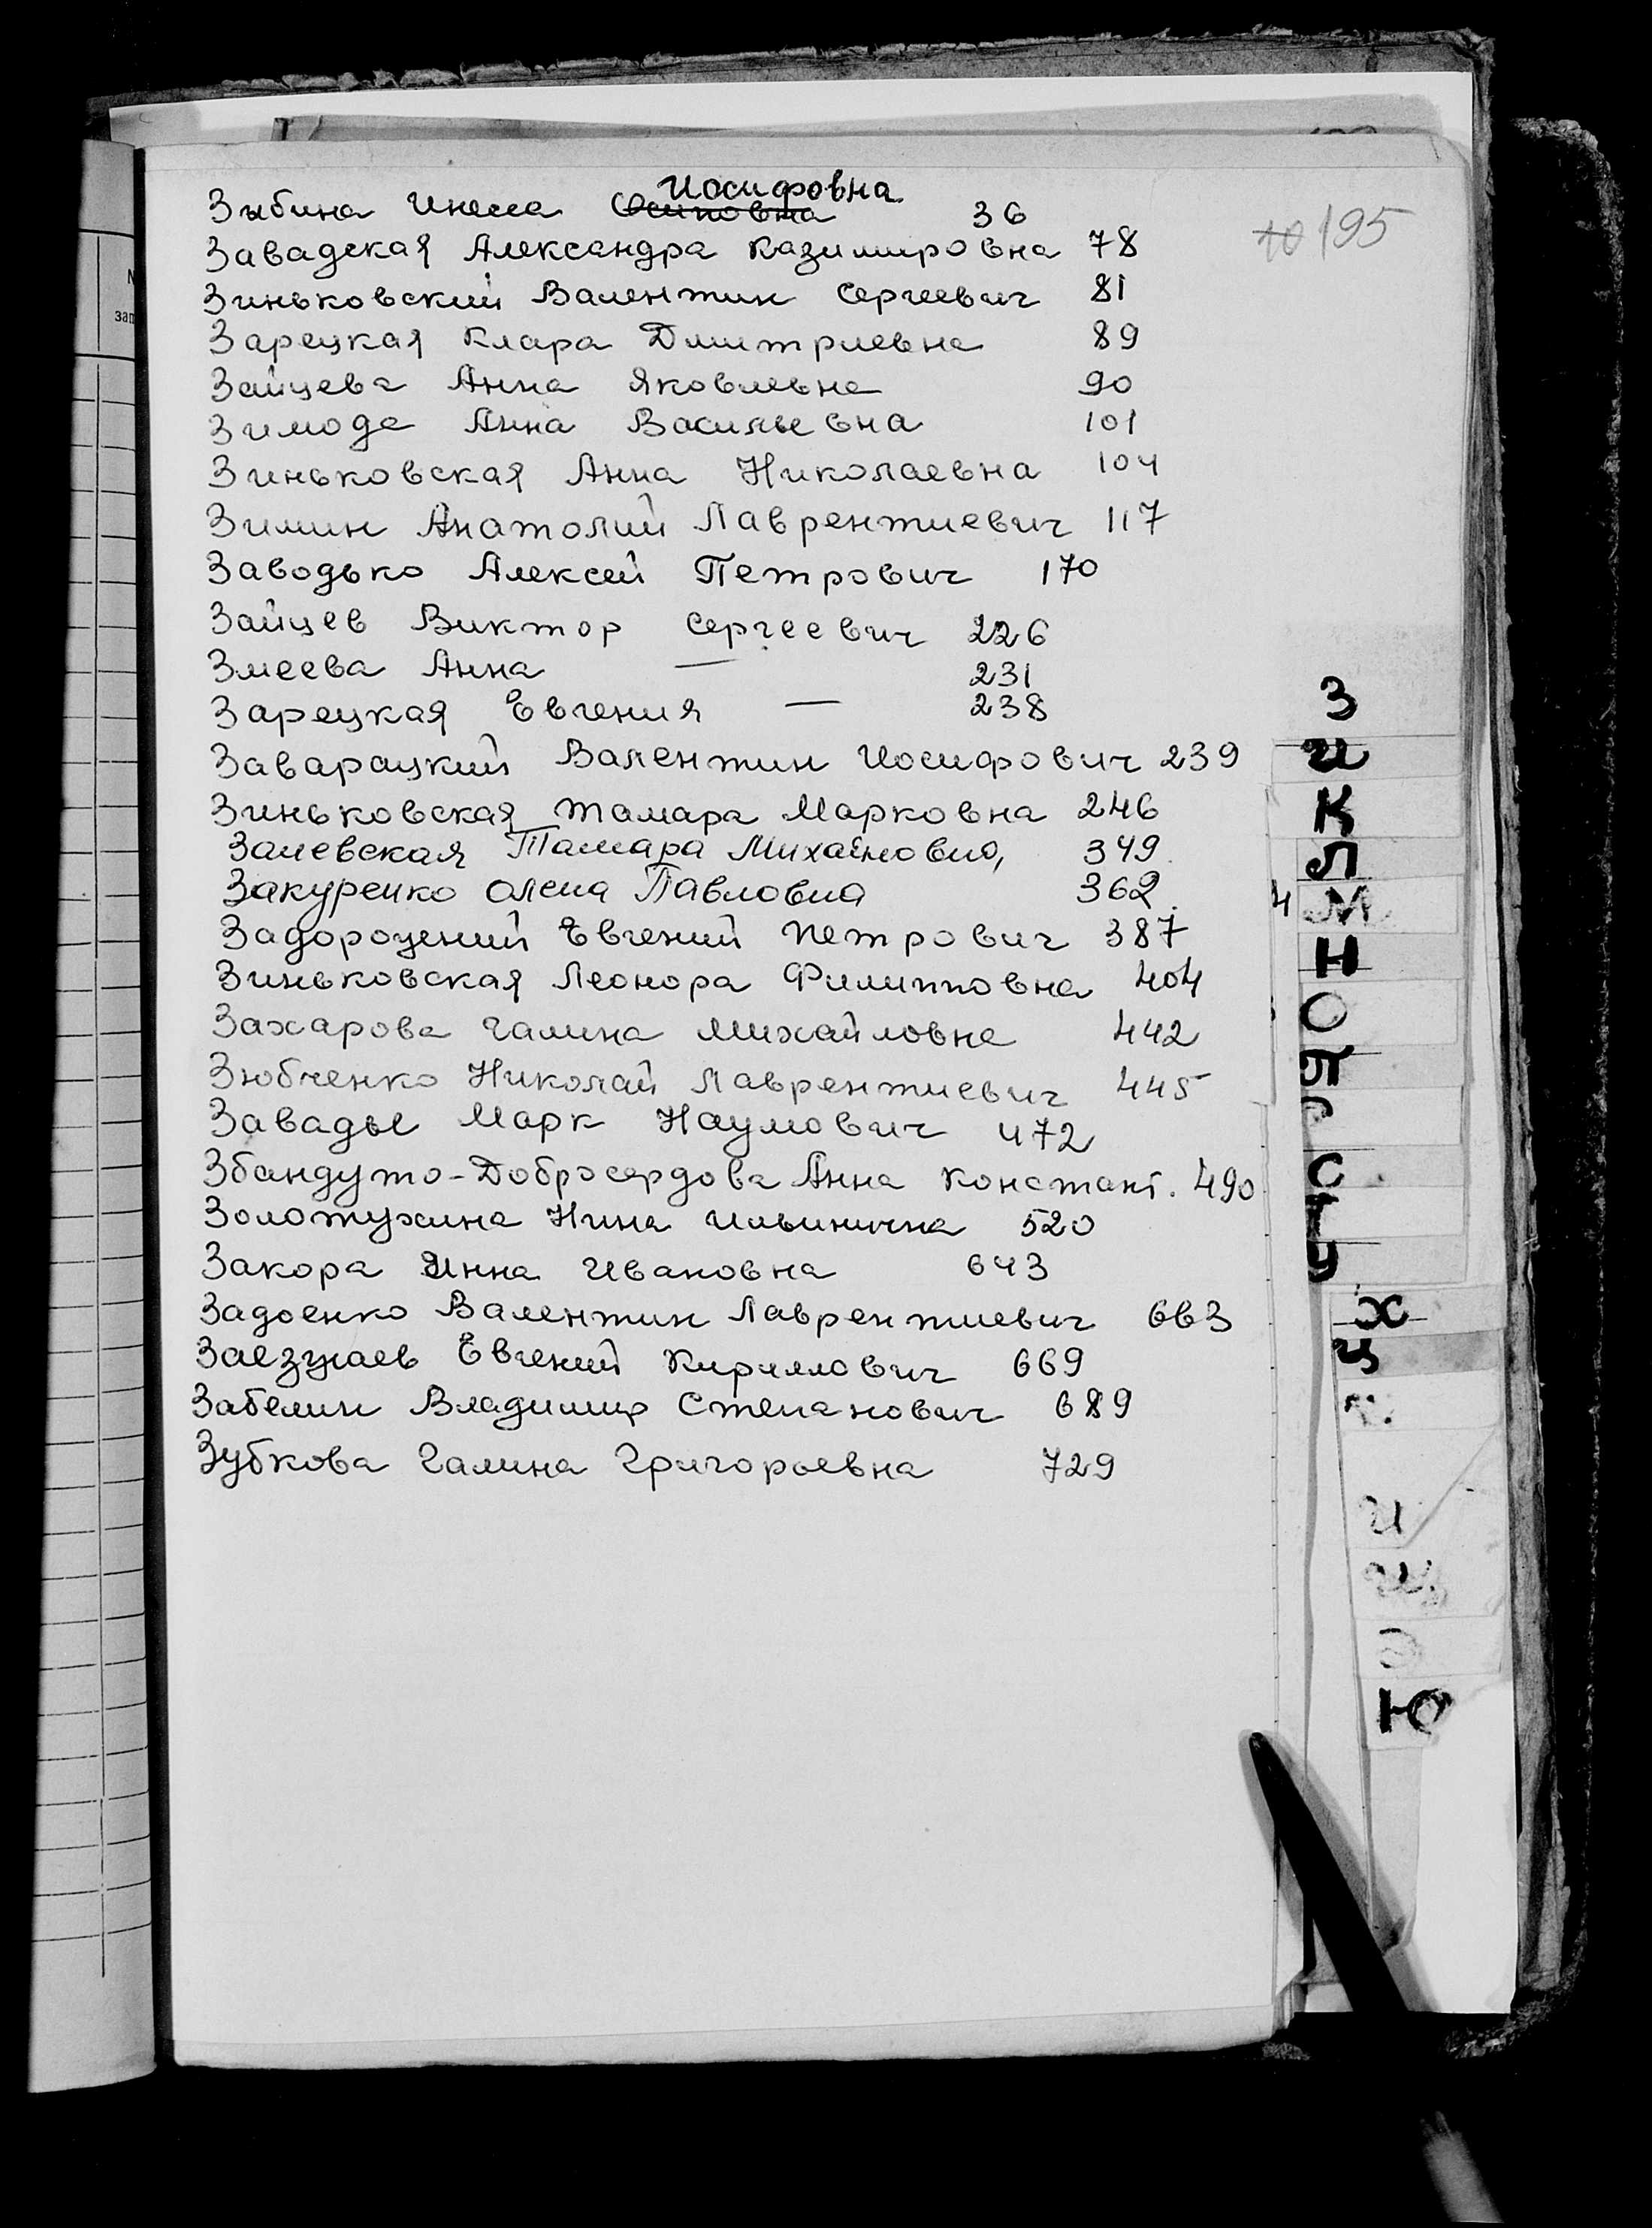 Иосифовна
Зыбина Инесса Осиповна 36
195
Завадская Александра Казимировна 78
Зиньковский Валентин Сергеевич 81
Зарецкая Клара Дмитриевна 89
Зайцева Анна Яковлевна 90
Зимода Анна Васильевна 101
Зиньковская Анна Николаевна 104
Зимин Анатолий Лаврентиевич 117
Заводько Алексей Петрович 170
Зайцев Виктор Сергеевич 226
Змеева Анна — 231
Зарецкая Евгения — 238
Заварацкий Валентин Иосифович 239
Зиньковская Тамара Марковна 246
Залевская Тамара Михайловна, 349
Закуренко Олена Павловна 362
Задорожний Евгений Петрович 387
Зиньковская Леонора Филипповна 404
Захарова Галина Михайловна 442
Зюбченко Николай Лаврентиевич 445
Завады Марк Наумович 472
Збандуто-Добросердова Анна Констант. 490
Золотухина Нина Ильинична 520
Закора Инна Ивановна 643
Задоенко Валентин Лаврентиевич 663
Евгений Кириллович 669
Забелин Владимир Степанович 689
Зубкова Галина Григорьевна 729
З
И
К
Л
М
Н
О
П
Р
С
Т
У
Х
Ц
Ю